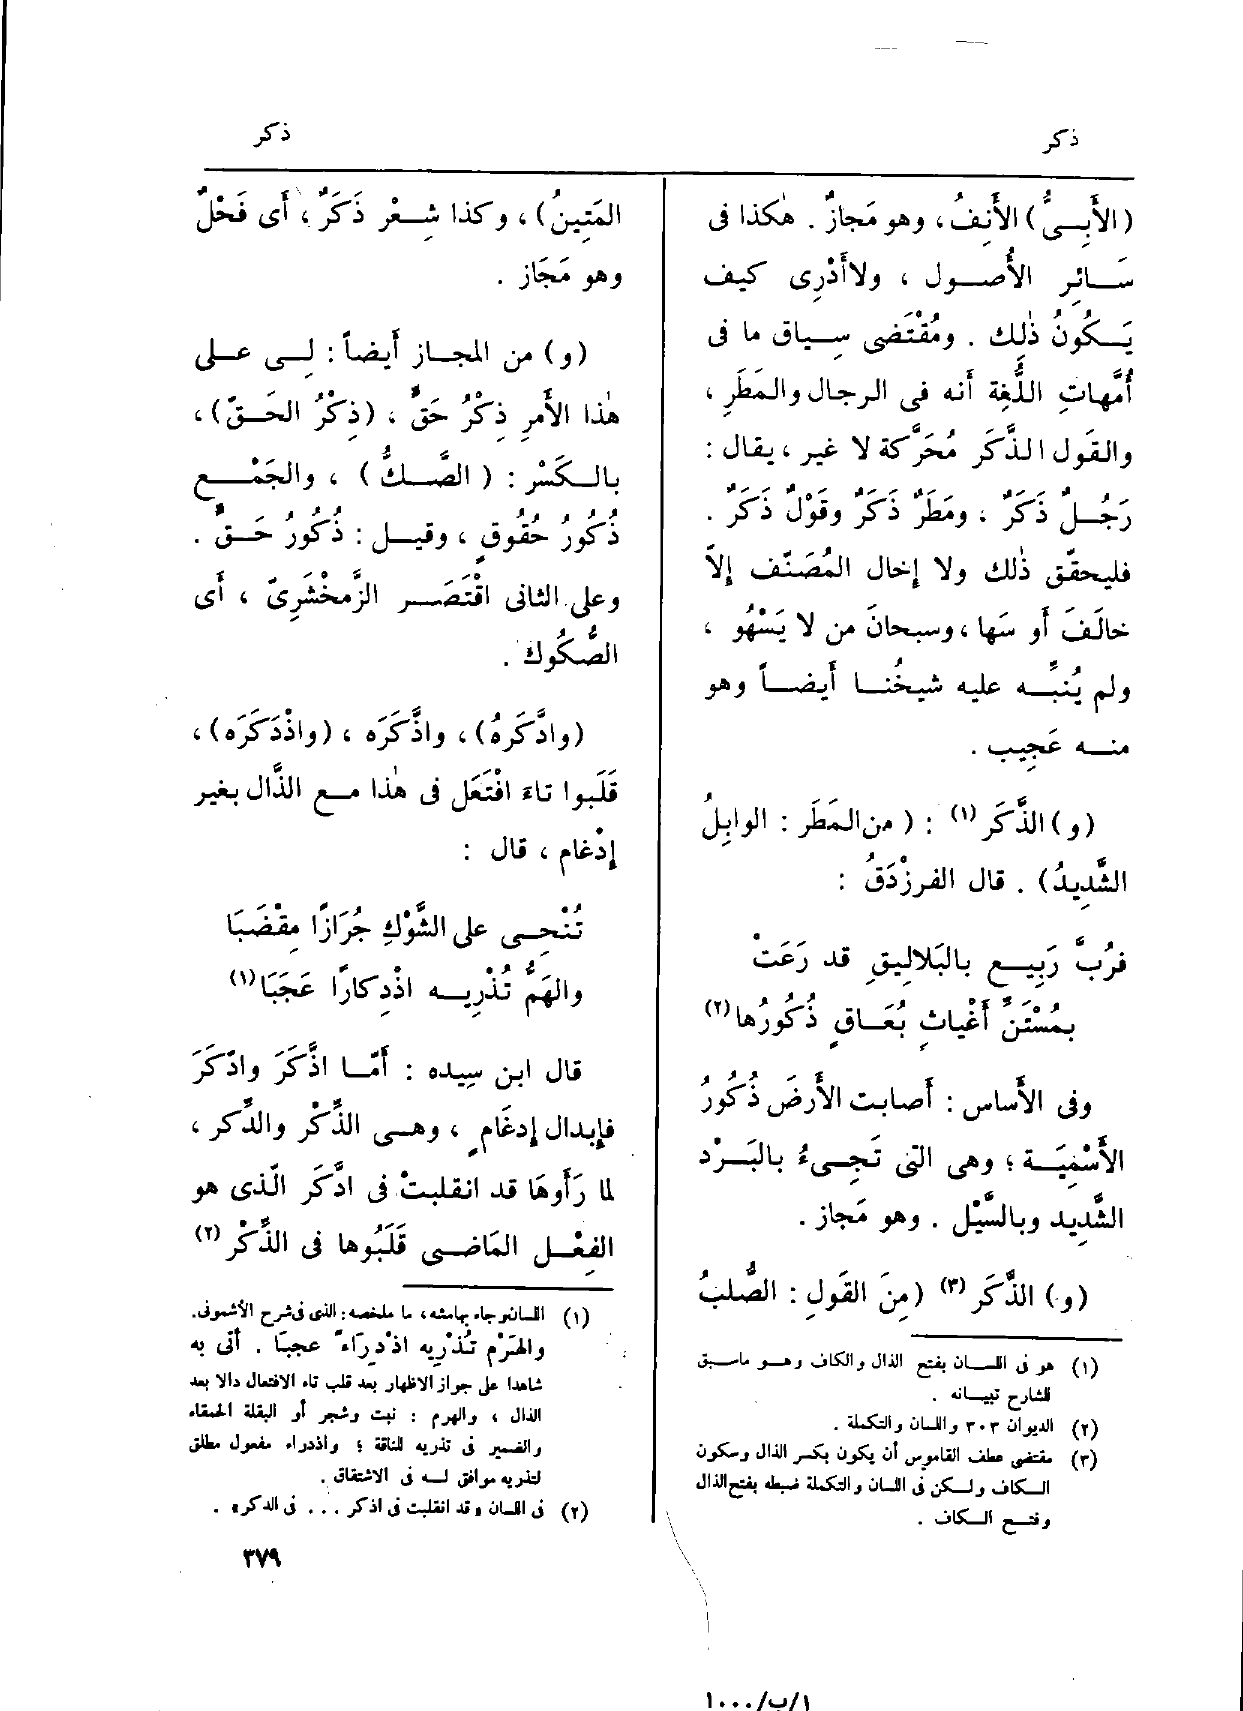 ذكر
ذكر
(الأَبِىُّ) الأَنِفُ، وهو مَجازٌ . هٰكذا فى
سَائِر الأُصول ، ولا أَدْرِى كيف
يَكُونُ ذٰلك . ومُقْتَضى سِياق ما فى
أُمَّهاتِ اللُّغِة أَنه فى الرجال والمَطَرِ ،
والقَول الذَّكَر مُحَرَّكة لا غير ، يقال :
رَجُلٌ ذَكَرٌ ، ومَطَرٌ ذَكَرٌ وقَوْلٌ ذَكَرٌ .
فليحقّق ذٰلك ولا إِخال المُصَنّف إِلاّ
خالَفَ أَو سَها ، وسبحانَ من لا يَسْهُو ،
ولم يُنَبِّه عليه شيخُنا أَيضاً وهو
منه عَجِيب .
(و) الذَّكَر (١) : (من المَطَر : الوابِلُ
الشَّدِيدُ) . قال الفرزْدَقُ :
فرُبَّ رَبِيعٍ بالبَلالِيقِ قد رَعَتْ
بمُسْتَنِّ أَغْياثٍ بُعَاقٍ ذُكُورُها (٢)
وفى الأَساس : أَصابت الأَرضَ ذُكُورُ
الأَسْمِيَة ؛ وهى التى تَجِىءُ بالبَرْد
الشَّدِيد وبالسَّيْل . وهو مَجاز .
(و) الذَّكَر (٣) (مِنَ القَولِ : الصُّلبُ
(١) هو فى اللسان بفتح الذال والكاف وهو ما سبق
للشارح تبيانه .
(٢) الديوان ٣٠٣ واللسان والتكملة .
(٣) مقتضى عطف القاموس أن يكون بكسر الذال وسكون
الكاف ولكن فى اللسان والتكملة ضبطه بفتح الذال
وفتح الكاف .
المَتِينُ) ، وكذا شِعْر ذَكَرٌ ، أَى فَحْلٌ
وهو مَجَاز .
(و) من المجاز أَيضاً : لِى على
هٰذا الأَمرِ ذِكْرُ حَقٍّ ، (ذِكْرُ الحَقّ) ،
بالكَسْر : (الصَّكُّ) ، والجَمْع
ذُكُورُ حُقُوقٍ ، وقيل : ذُكُورُ حَقٍّ .
وعلى الثانى اقْتَصَر الزَّمَخْشَرِىّ ، أَى
الصُّكُوك .
(وادَّكَرهُ) ، واذَّكَرَه ، (واذْدَكَرَه) ،
قَلَبوا تاءَ افْتَعَل فى هٰذا مع الذَّال بغير
إِدْغام ، قال :
تُنْحِى على الشَّوْكِ جُرَازًا مِقْضَبَا
والهَمُّ تُذْرِيه اذْدِكارًا عَجَبَا (١)
قال ابن سِيده : أَمّا اذَّكَرَ وادّكَرَ
فإِبدال إِدغَامٍ ، وهى الذِّكْر والدِّكر ،
لما رَأَوهَا قد انقلبتْ فى ادَّكَر الّذى هو
الفِعْل المَاضِى قَلَبُوها فى الذِّكْر (٢)
(١) اللسان وجاء بهامشه ، ما ملخصه : الذى فى شرح الأشمونى.
والهَرْم تُذْريه اذْدِرَاءً عجبَا . أتى به
شاهدا على جواز الإظهار بعد قلب تاء الافتعال دالا بعد
الذال ، والهرم : نبت وشجر أو البقلة الحمقاء
والضمير فى تذريه للناقة ؛ واذدراء مفعول مطلق
لتذريه موافق له فى الاشتقاق .
(٢) فى اللسان « قد انقلبت فى اذكر ... فى الدكر» .
٣٧٩
١/ب/١٠٠٠